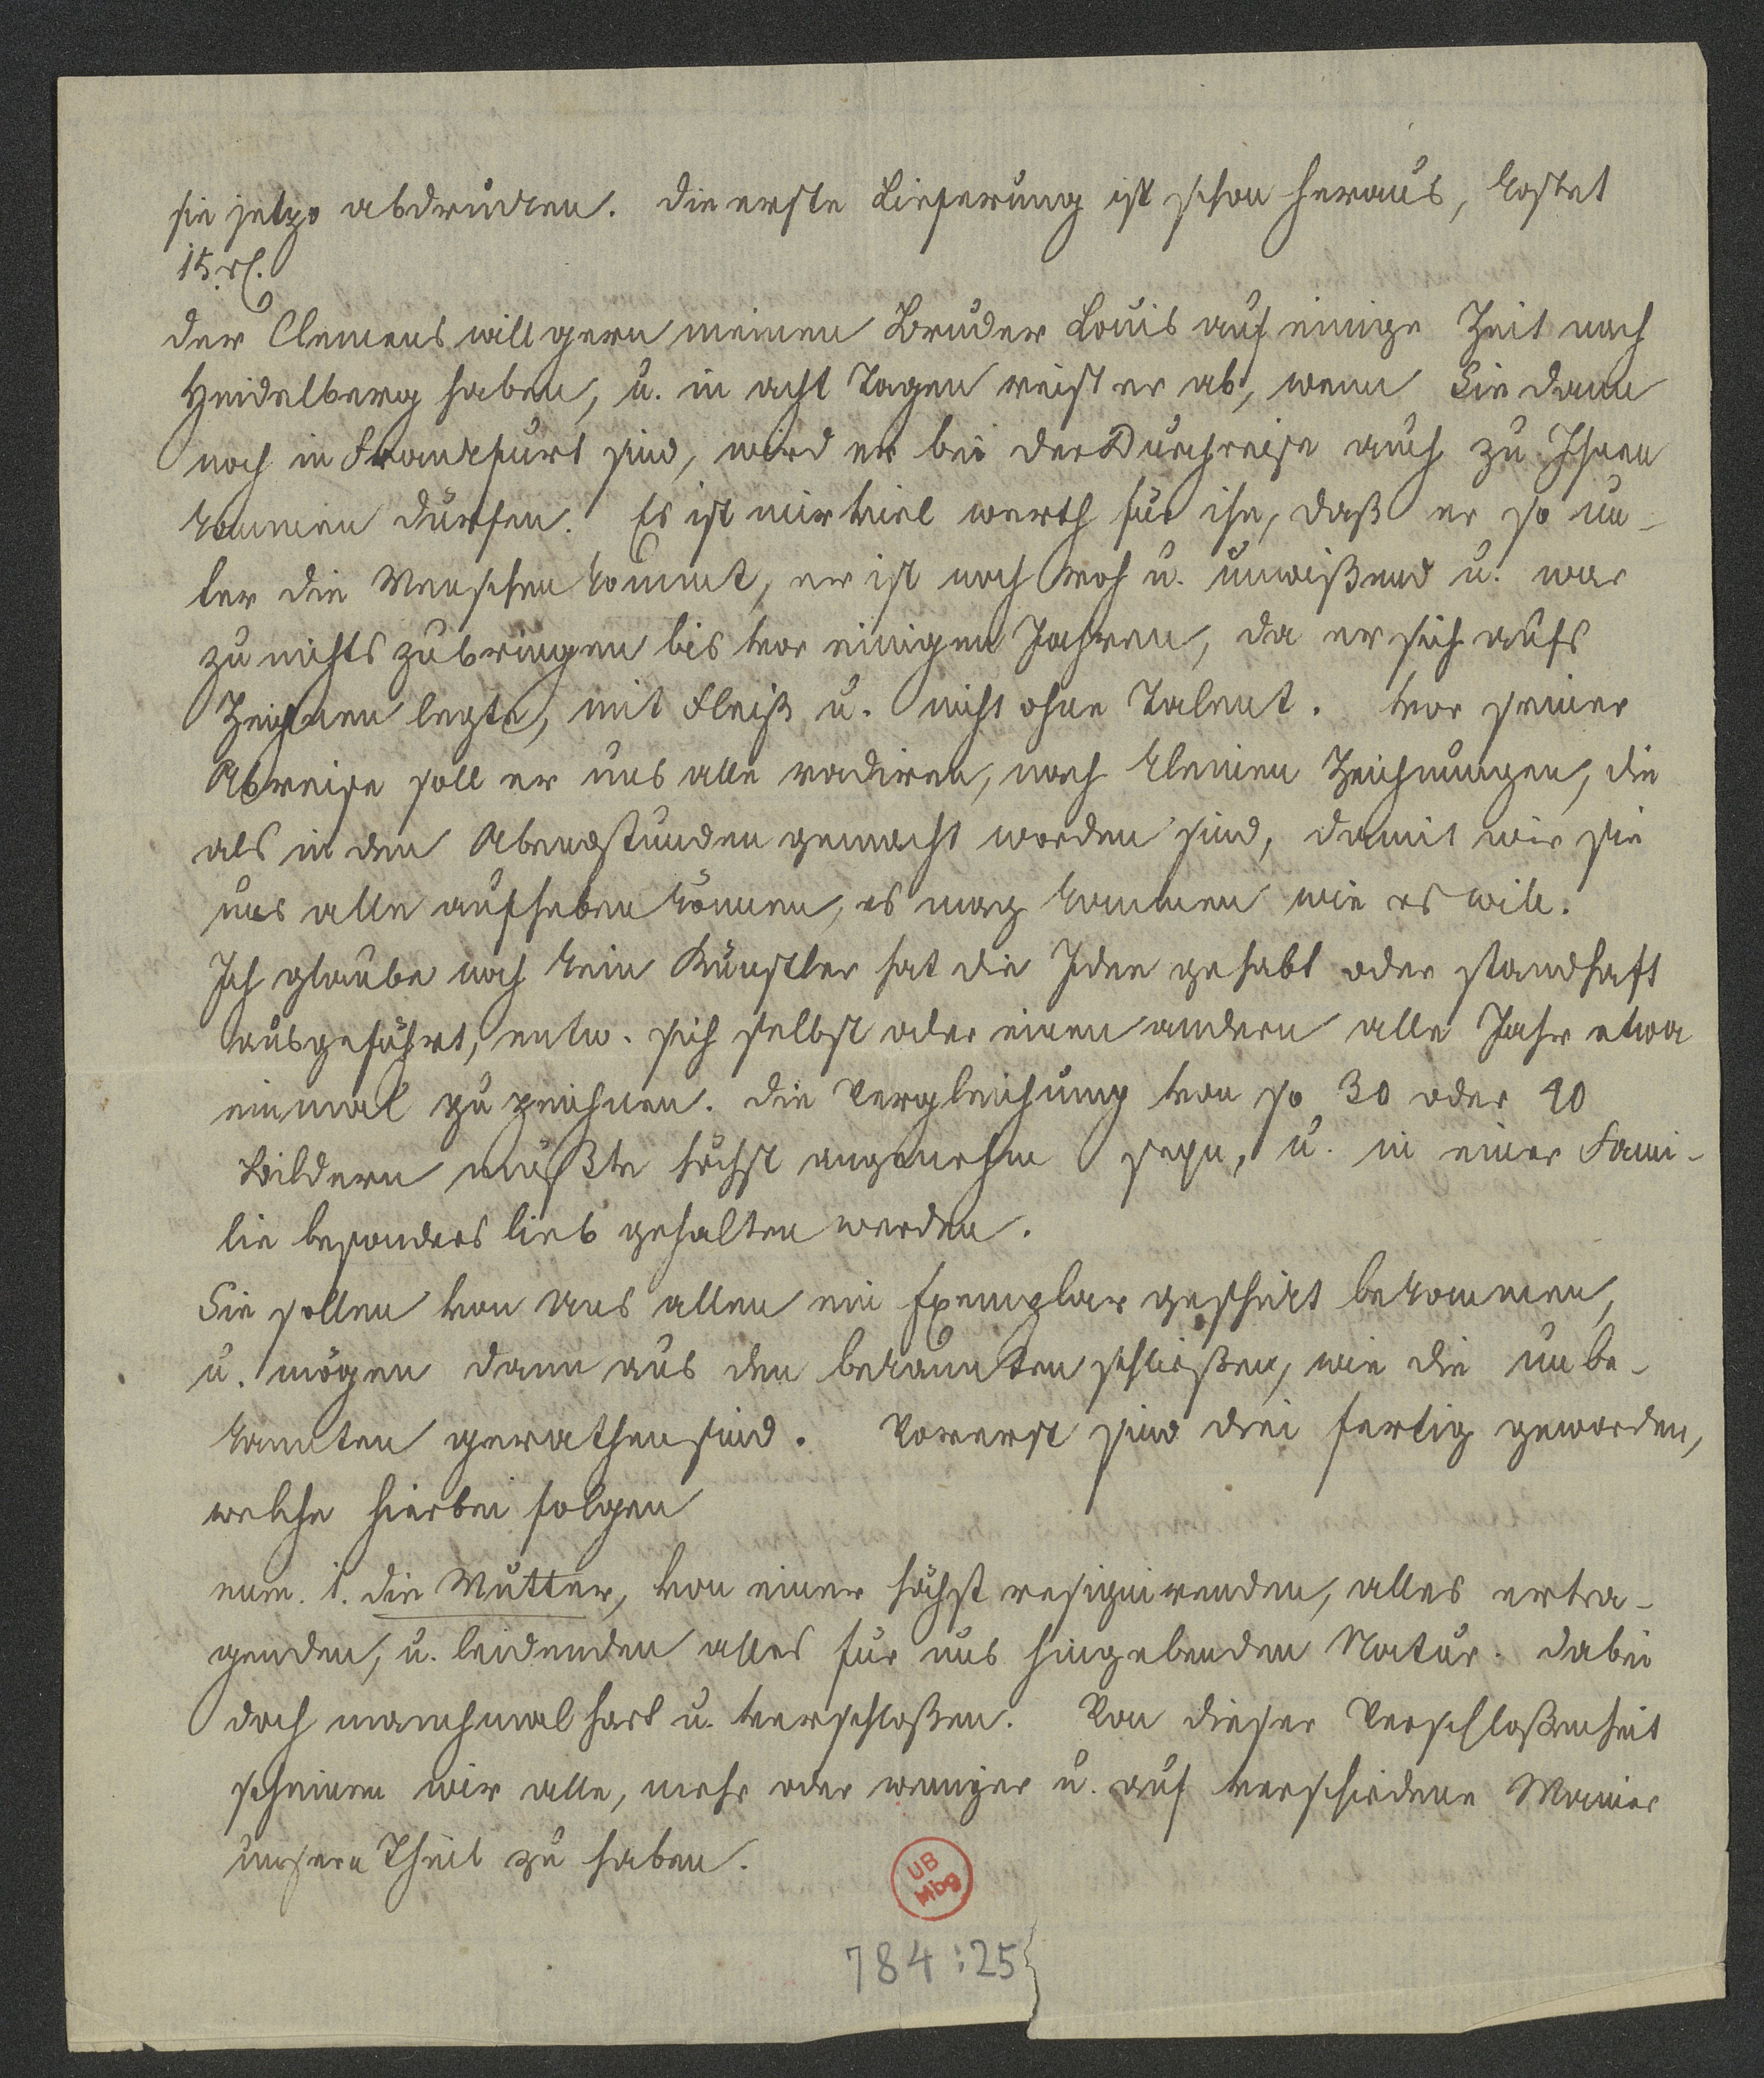 sie jetzo abdrucken. die erste Lieferung ist schon heraus, kostet
15 rl.
der Clemens will gern meinen Bruder Louis auf einige Zeit nach
Heidelberg haben, u. in acht Tagen reist er ab, wenn Sie dann
noch in Frankfurt sind, wird er bei der Durchreise auch zu Ihnen
kommen dürfen. Es ist mir viel werth für ihn, daß er so un-
ter die Menschen kommt, er ist noch roh u. unwißend u. war
zu nichts zubringen bis vor einigen Jahren, da er sich aufs
Zeichnen legte, mit Fleiß u. nicht ohne Talent. vor seiner
Abreise soll er uns alle radiren, nach kleinen Zeichnungen, die
als in den Abendstunden gemacht worden sind, damit wir sie
uns alle aufheben können, es mag kommen wie es will.
Ich glaube noch kein Künstler hat die Idee gehabt oder standhaft
ausgeführt, entw. sich selbst oder einen andern alle Jahr etwa
einmal zu zeichnen. die Vergleichung von so 30 oder 40
Bildern müßte höchst angenehm seyn, u. in einer Fami-
lie besonders lieb gehalten werden.
Sie sollen von uns allen ein Exemplar geschickt bekommen,
u. mögen dann aus den bekannten schließen, wie die unbe-
kannten gerathen sind. Vorerst sind drei fertig geworden,
welche hierbei folgen
num. 1. die Mutter, von einer höchst resignirenden, alles ertra-
genden, u. leidenden alles für uns hingebenden Natur. dabei
doch manchmal hart u. verschloßen. Von dieser Verschloßenheit
scheinen wir alle, mehr oder weniger u. auf verschiedene Manier
unsern Theil zu haben.
UB
Mbg
784:25